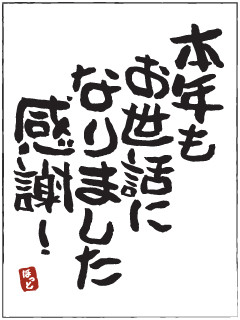 本年も
お世話に
なりました
感謝！
ほっと